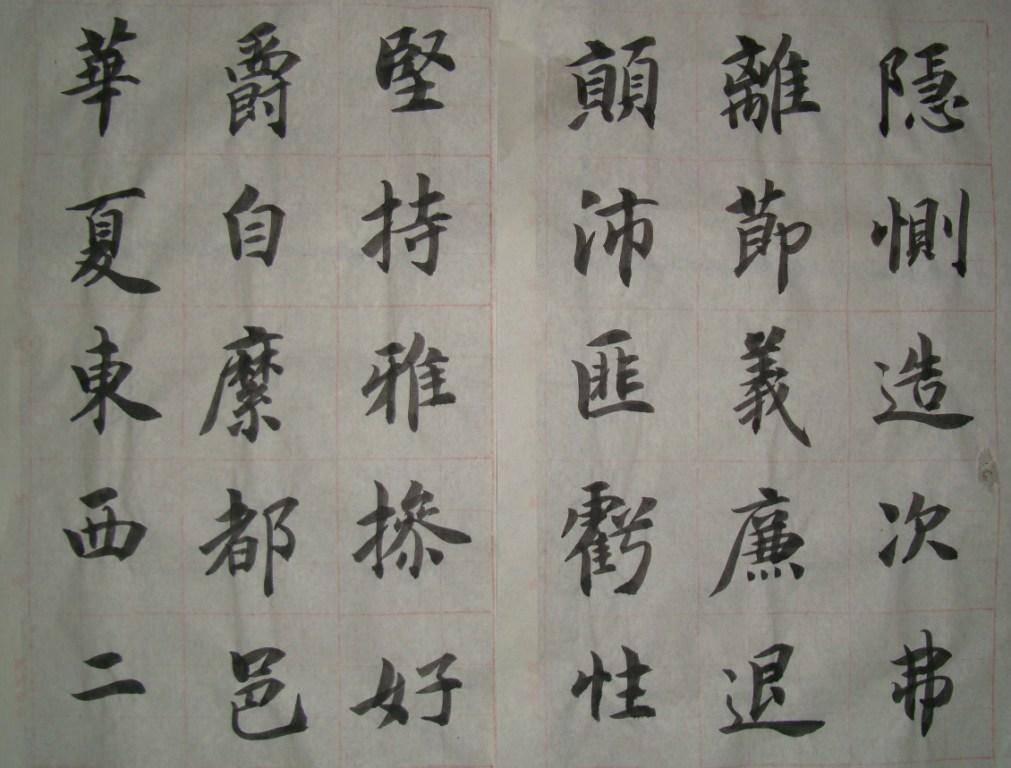 隱惻造次弗
離節義廉退
顛沛匪虧性
堅持雅操好
爵自縻都邑
華夏東西二